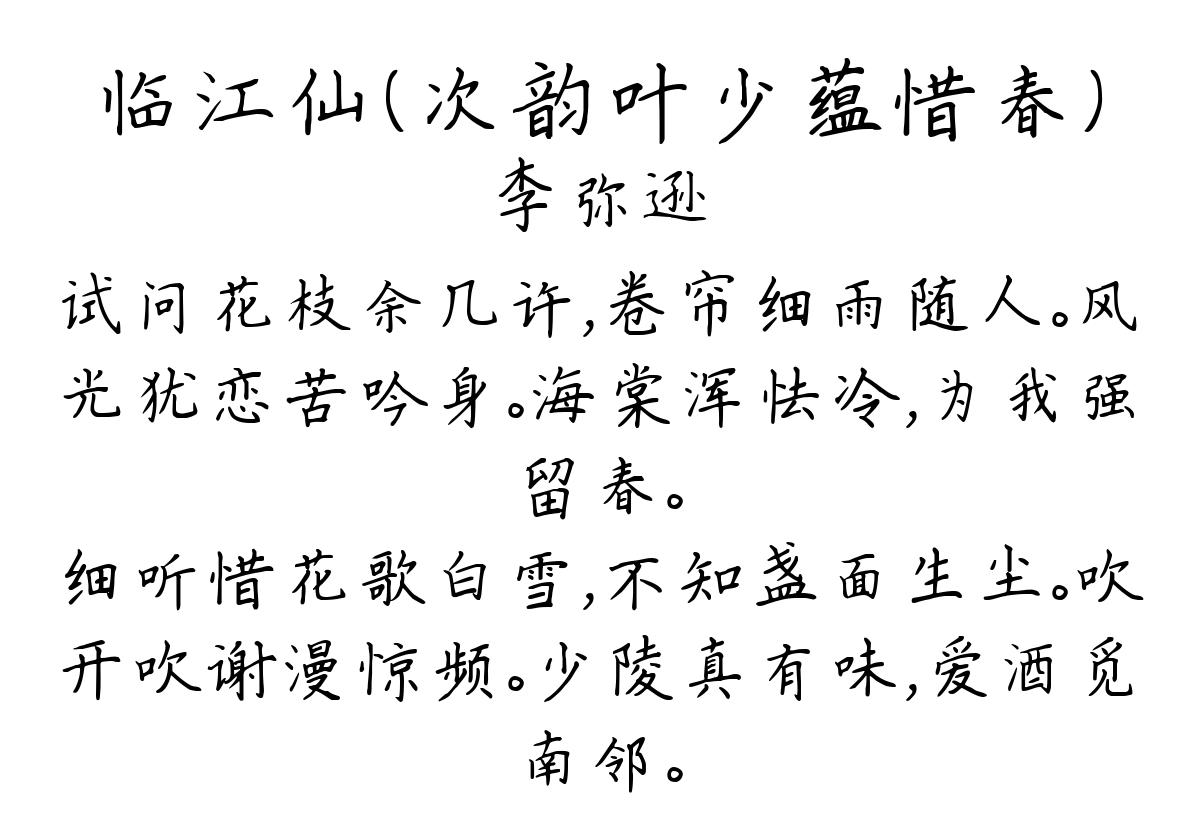 临江仙(次韵叶少蕴惜春)
李弥逊
试问花枝余几许,卷帘细雨随人。风
光犹恋苦吟身。海棠浑怯冷,为我强
留春。
细听惜花歌白雪,不知盏面生尘。吹
开吹谢漫惊频。少陵真有味,爱酒觅
南邻。